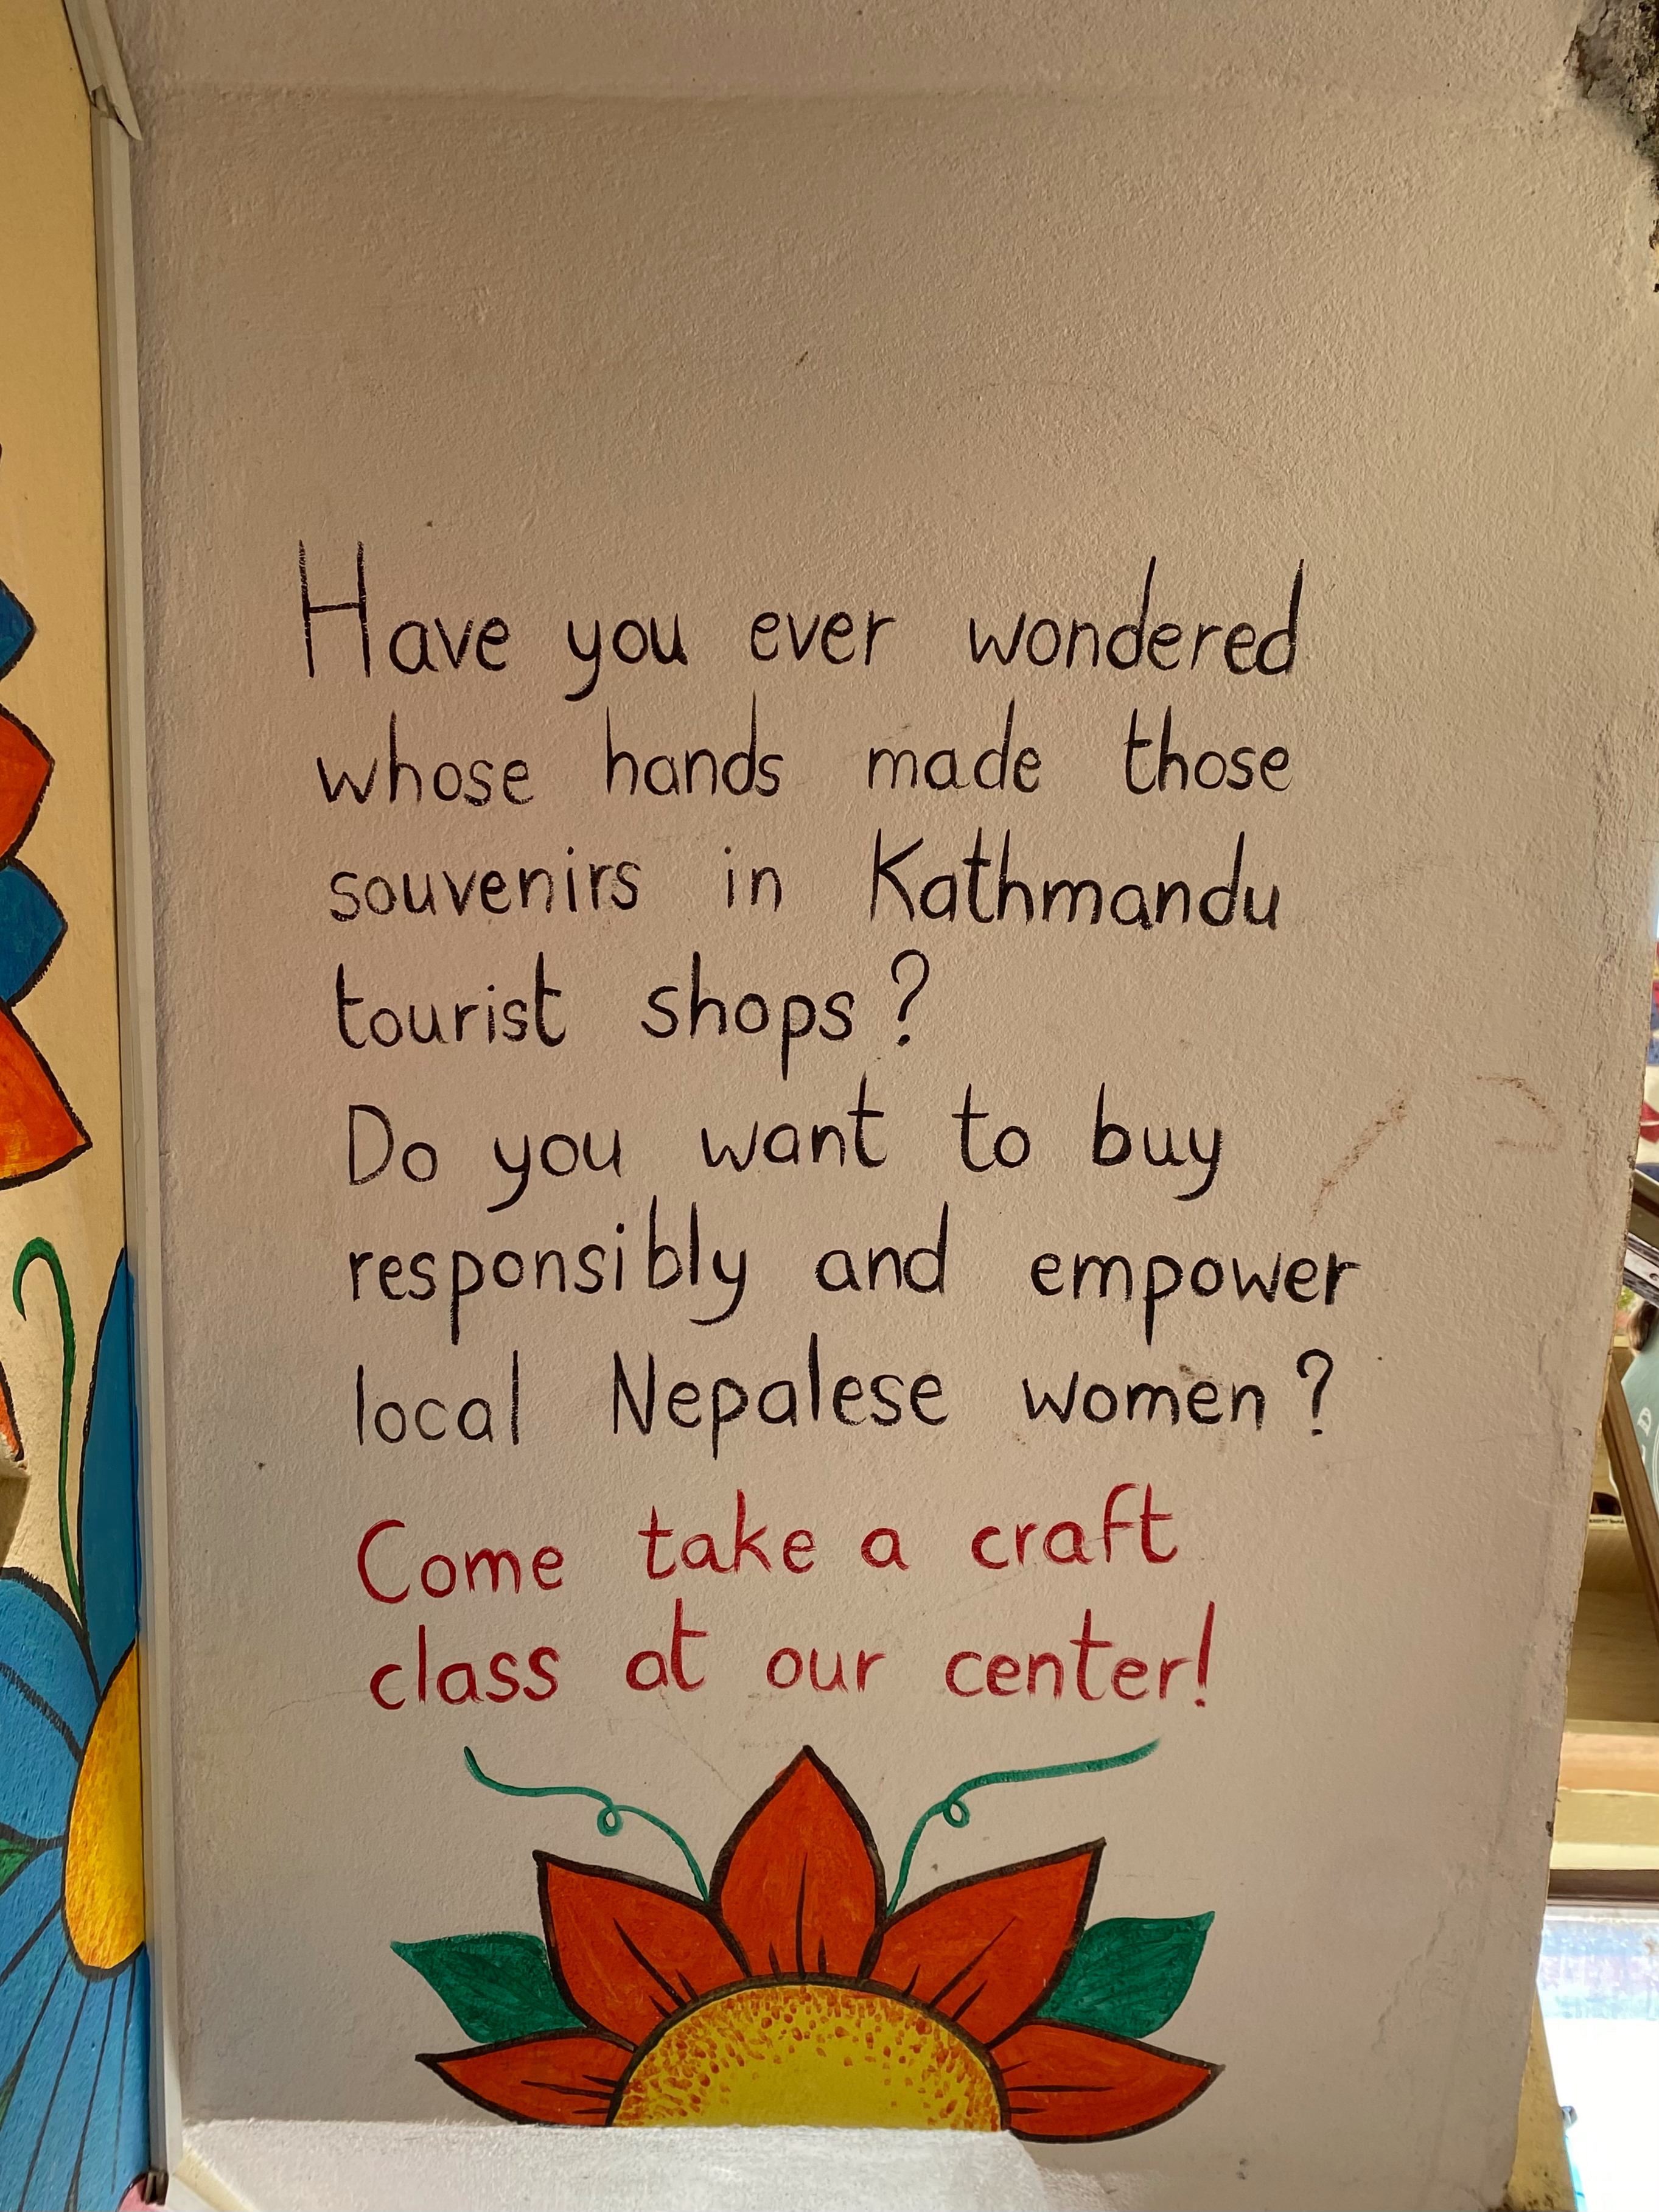 Have you ever wondered
whose hands made those
souvenirs in Kathmandu
tourist shops?
Do you want to buy
responsibly and empower
local Nepalese women?
Come take a craft
class at our center!